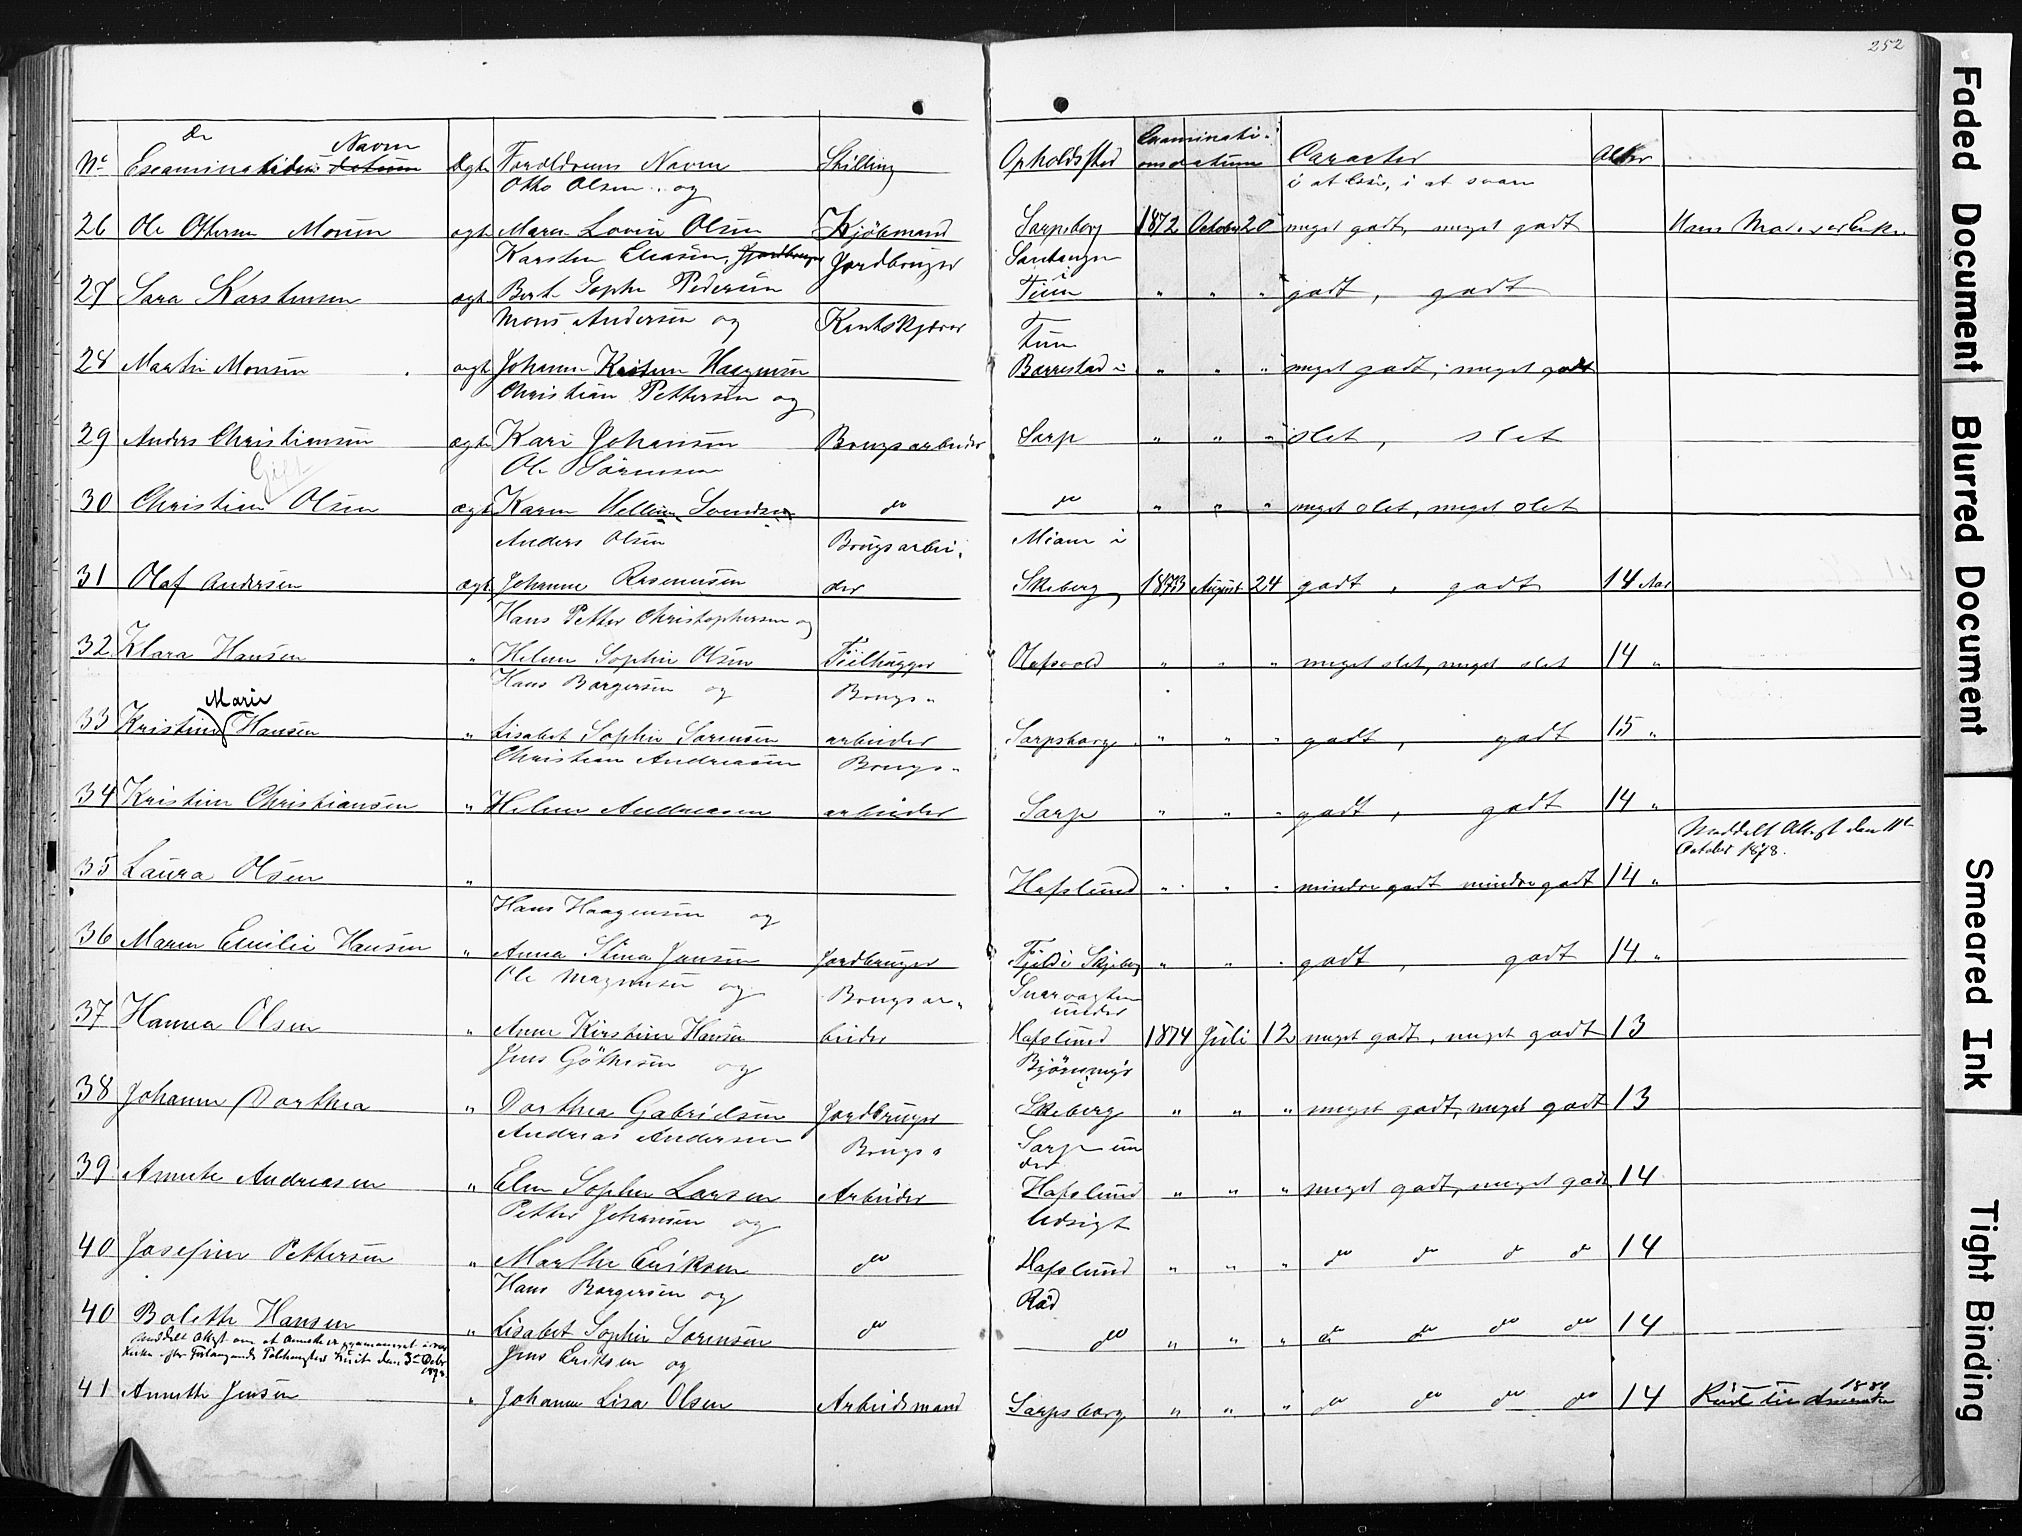 252
De Navn
No Examineredes datum Ægte Forældrenes Navn Stilling Opholdssted Examinati- onsdatum Caracter Alder
i at læse, i at svare
Otto Olsen og
26 Ole Ottersen Monsen ægte Maren Lovise Olsen Kjöbmand Sarpsborg 1872 October 20 meget godt, meget godt
Karsten Eliasen, Jordbruger Jordbruger
27 Sara Karstensen ægte Bert. Sophie Pedersen Tune " " " godt, godt
Mons Andersen og
28 Martin Monsen ægte Johanne Kristine Haagensen Tune
Borrestad i " " " meget godt, meget godt
Christian Pettersen og
29 Anders Christiansen ægte Kari Johansen Brugsarbeider Sarp " " " slet, slet
Gift
Ole Sörensen
30 Christian Olsen ægte Karen Helline Svendsen do do " " " meget slet, meget slet
Anders Olsen Brugsarbei-
31 Olaf Andersen ægte Johanne Rasmussen der Skeberg 1873 August 24 godt, godt 14 Aar
Hans Petter Christophersen og
32 Klara Hansen " Helene Sophie Olsen Fiilhugger Olafsvold " " " meget slet, meget slet 14 "
Hans Borgersen og Brugs-
Marie
33 Kristine Hansen " Lisabet Sophie Sorensen arbeider Sarpsborg " " " godt, godt 15 "
Christian Andreasen Brugs-
34 Kristine Christiansen " Helene Andreasen arbeider Sarp " " " godt, godt 14 "
Meddelt Attest den 11te
October 1878.
35 Laura Olsen " Hafslund " " " mindre godt mindre godt 14 "
Hans Haagensen og
36 Maren Emilie Hansen " Anna Stina Jansen Jordbruger Fjeld i Skjeberg " " " godt, godt 14 "
Ole Magnusen og Brugsar-
under
37 Hanna Olsen " Anne Kirstine Hansen beider Hafslund 1874 Juli 12 meget godt, meget godt 13
Jens Göthesen og Bjørnemyr
i
38 Johanne Dorthea " Dorthea Gabrielsen Jordbruger Skeberg " " " meget godt, meget godt 13
Andreas Andersen Brugs- Sarp un
der
39 Annete Andreasen " Elen Sophie Larsen Arbeider Hafslund " " " meget godt, meget godt 14
Petter Johansen og Udsigt
40 Josefine Pettersen " Marthe Eriksen do Hafslund " " " do do do do 14
Hans Borgersen og Råd
40 Bolette Hansen " Lisabet Sophie Sorensen do do " " " do do do do 14
Meddelt Attest om at Annette er
den 3die Octbr
Jens Eriksen og
41 Annette Jensen " Johanne Lisa Olsen Arbeidsmand Sarpsborg " " " do do do do 14 Reist til Amerika 1880
Faded Document
Blurred Document
Smeared Ink
Tight Binding